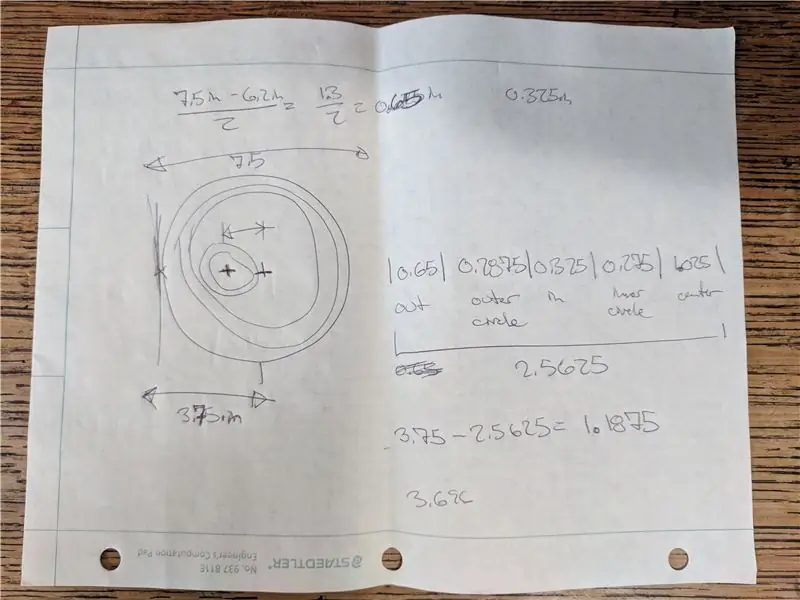 7.5in - 6.2in / 2 = 1.3 / 2 = 0.65in
0.325in
7.5
|0.65| 0.2875|0.325|0.275| 1.025|
out outer circle in inner circle center
2.5625
0.65
3.75in
3.75 - 2.5625 = 1.1875
3.69
STAEDTLER®
No. 937 811E
Engineer's Computation Pad